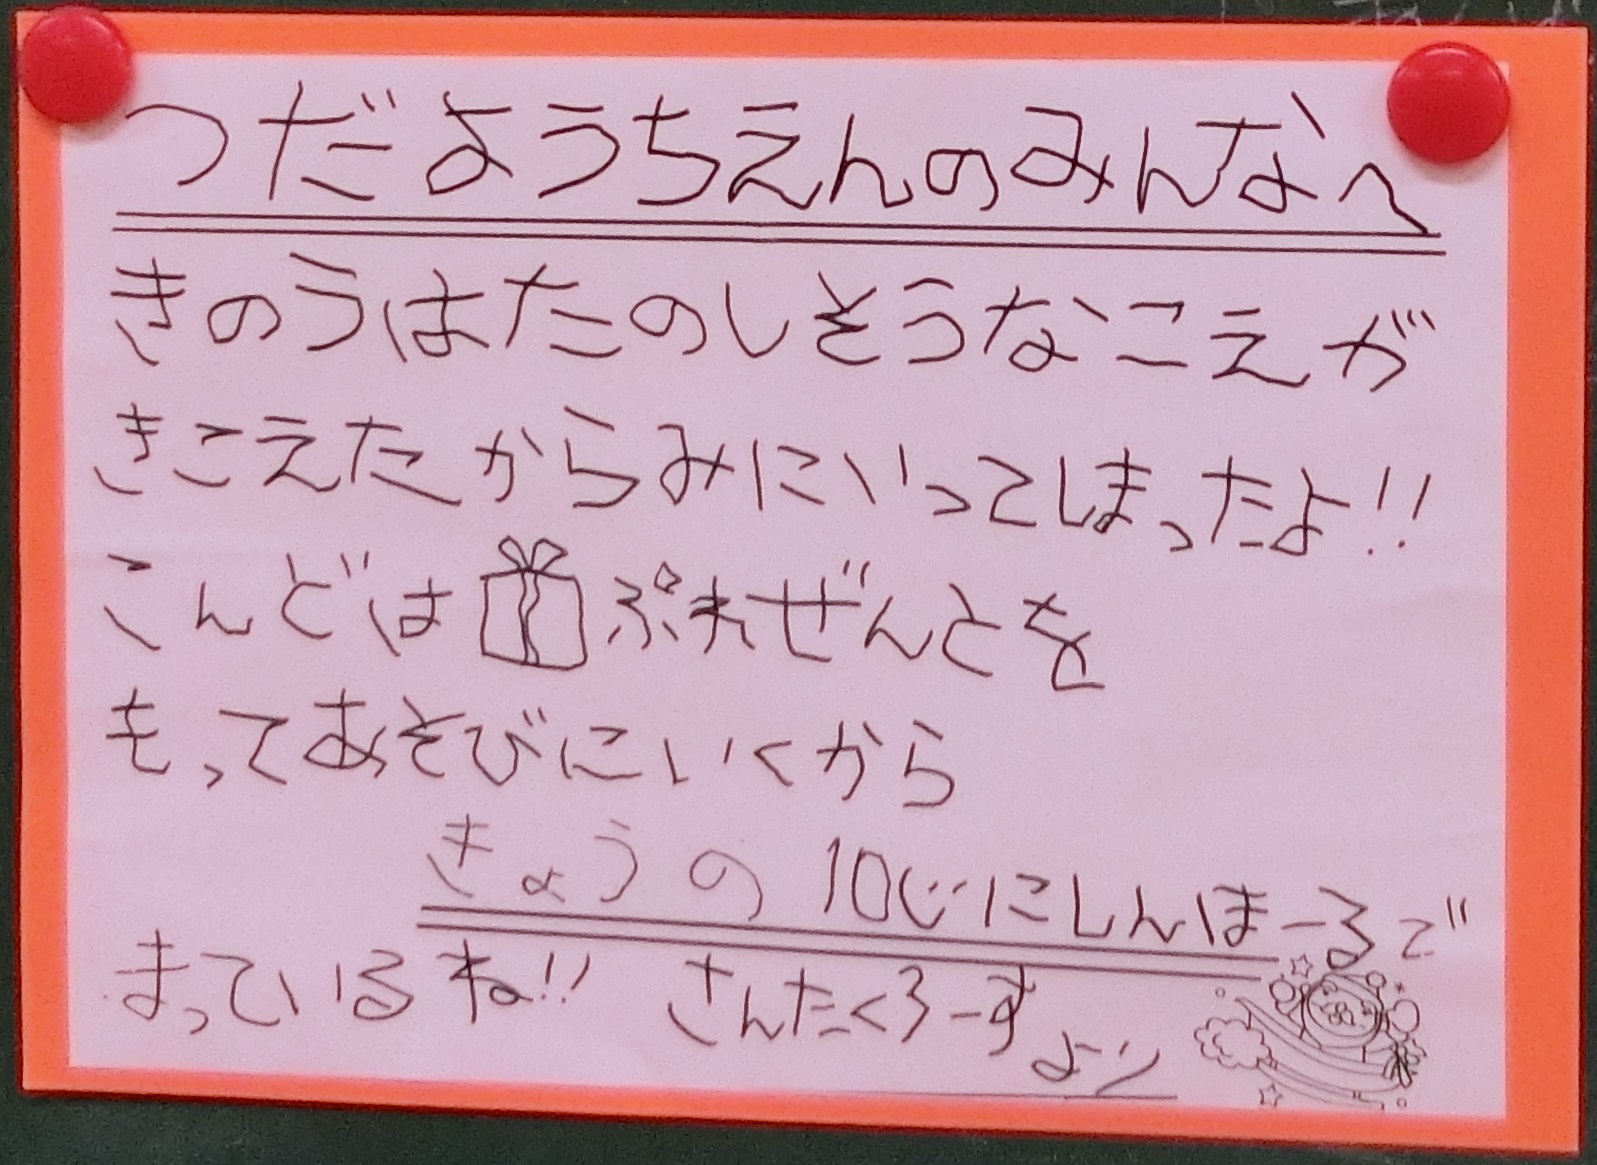 つだようちえんのみんなへ
きのうはたのしそうなこえが
きこえたからみにいってしまったよ!!
こんどはぷれぜんとを
もってあそびにいくから
きょうの10じにしんほーるで
まっているね!! さんたくろーすより